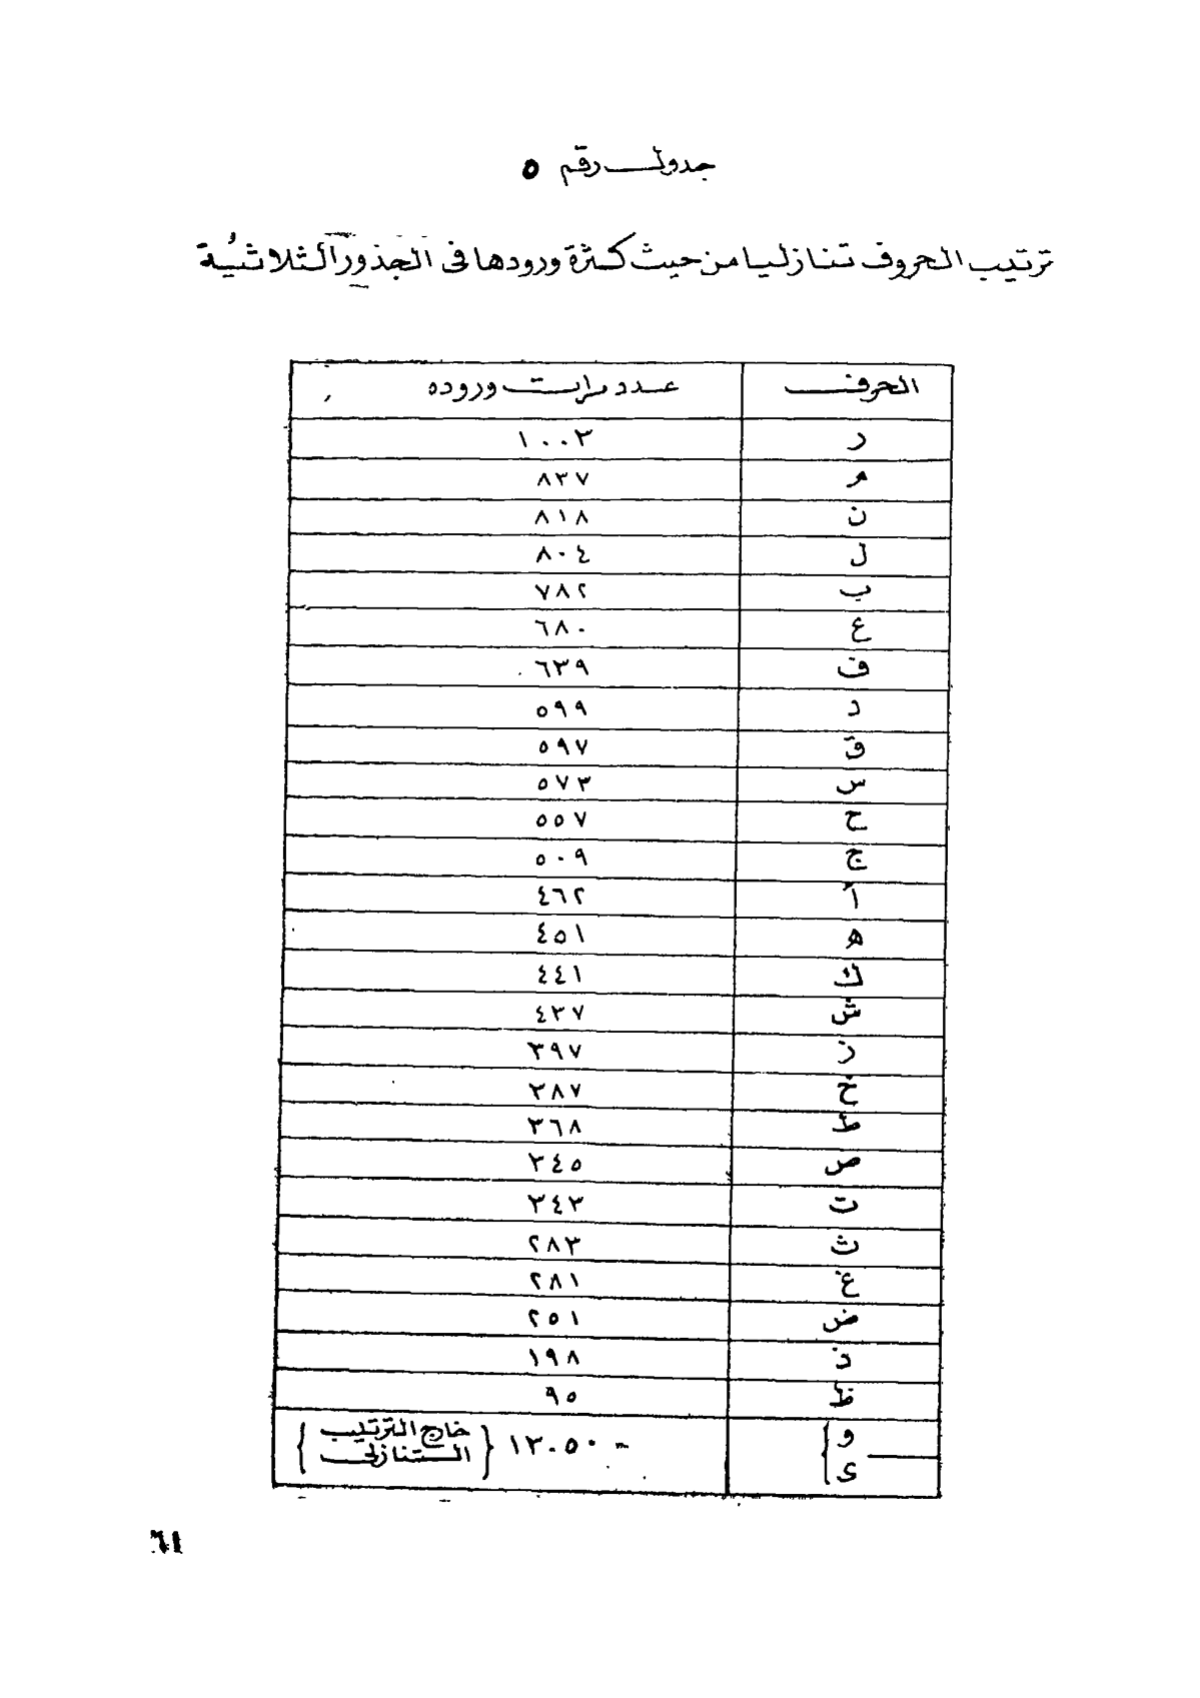 جدول رقم ٥
ترتيب الحروف تنازليا من حيث كثرة ورودها فى الجذور الثلاثية
الحرف عدد مرات وروده
ر ١٠٠٣
م ٨٣٧
ن ٨١٨
ل ٨٠٤
ب ٧٨٢
ع ٦٨٠
ف ٦٣٩
د ٥٩٩
ق ٥٩٧
س ٥٧٣
ح ٥٥٧
ج ٥٠٩
أ ٤٦٢
ه ٤٥١
ك ٤٤١
ش ٤٣٧
ز ٣٩٧
خ ٣٨٧
ط ٣٦٨
ص ٣٤٥
ت ٣٤٣
ث ٢٨٣
غ ٢٨١
ض ٢٥١
ذ ١٩٨
ظ ٩٥
و
ى
{ خارج الترتيب
التنازلى }
٦١